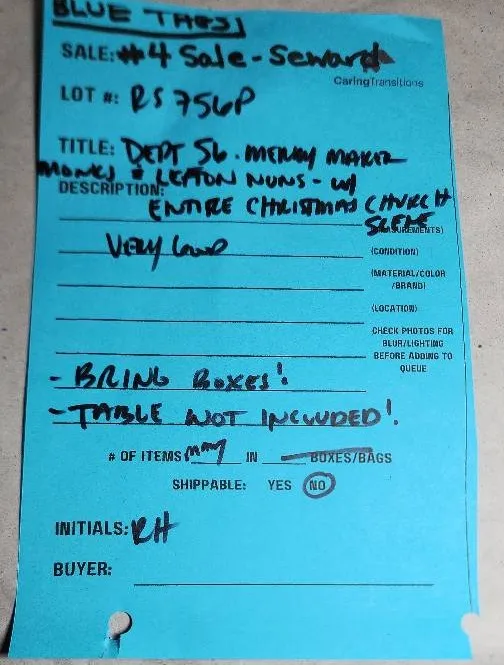 BLUE TAGS!
SALE: #4 Sale - Seward
CaringTransitions
LOT #: RS 756P
TITLE: DEPT 56. MERRY MAKER
MONKS & LEPTON NUNS - W/
DESCRIPTION: ENTIRE CHRISTMAS CHURCH
SCENE
(MEASUREMENTS)
VERY GOOD
(CONDITION)
(MATERIAL/COLOR
/BRAND)
(LOCATION)
CHECK PHOTOS FOR
BLUR/LIGHTING
BEFORE ADDING TO
QUEUE
- BRING BOXES!
- TABLE NOT INCLUDED!
# OF ITEMS MANY IN BOXES/BAGS
SHIPPABLE: YES NO
INITIALS: RH
BUYER: